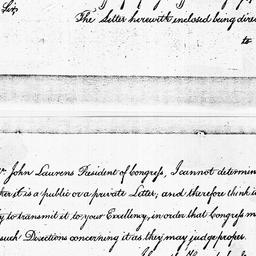 Sir,
The Letter herewith enclosed being dire
to
John Laurens President of Congress, I cannot determin
it is a public or a private Letter, and therefore think i
to transmit it to your Excellency, in order that Congress m
such Directions concerning it as they may judge proper.